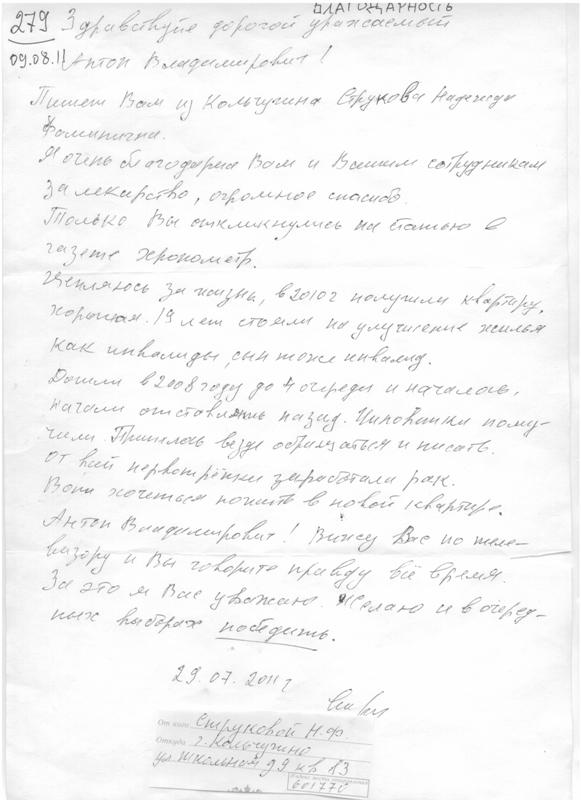 БЛАГОДАРНОСТЬ
279 Здравствуйте дорогой уважаемый
09.08.11 Антон Владимирович!
Пишет Вам из Кольчугина Струкова Надежда
Фоминична.
Я очень благодарна Вам и Вашим сотрудникам
За лекарство, огромное спасибо.
Только Вы откликнулись на статью в
газете хронометр.
Цепляюсь за жизнь, в 2010г получили квартиру,
хорошая. 19 лет стояли на улучшение жилья
как инвалиды, сын тоже инвалид.
Дошли в 2008 году до 4 очереди и началось,
начали отставлять назад. Чиновники пому-
чили. Пришлось везде обращаться и писать.
От вай нервотрёпки заработала рак.
Вот хочеться пожить в новой квартире.
Антон Владимирович! Вижу Вас по теле-
визору и Вы говорите правду всё время.
За это я Вас уважаю. Желаю и в очеред-
ных выборах победить.
29.07.2011г
От кого Струковой Н.Ф
Откуда г. Кольчугино
ул. Школьная д9 кв 13
601770